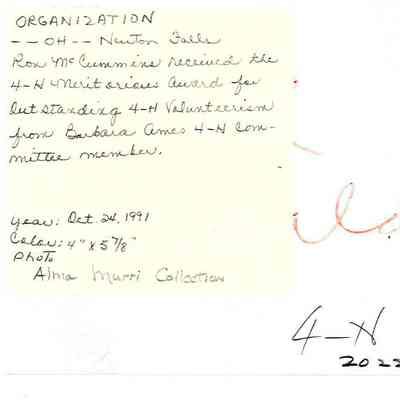 ORGANIZATION
-- OH -- Newton Falls
Ron McCummins received the
4-H Meritorious Award for
Outstanding 4-H Volunteerism
from Barbara Ames 4-H Com-
mittee member.
Year: Oct. 24, 1991
Color: 4" x 5 7/8"
Photo
Alma Murri Collection
4-H
2022